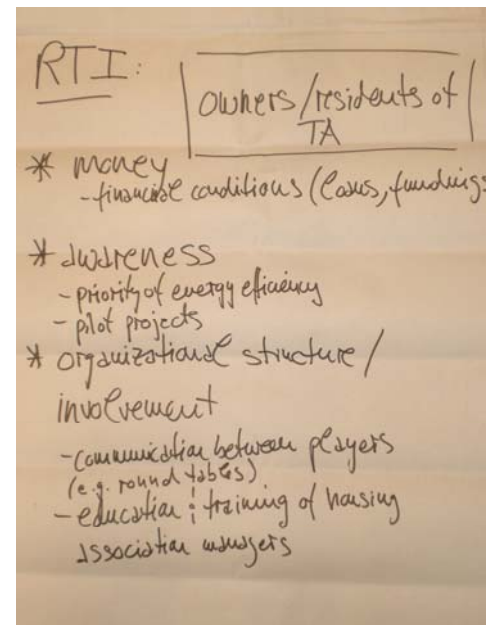 RTI:
owners/residents of
TA
* money
- financial conditions (loans, fundings
* awareness
- priority of energy efficiency
- pilot projects
* organizational structure /
involvement
- communication between players
(e.g. round tables)
- education; training of housing
association managers